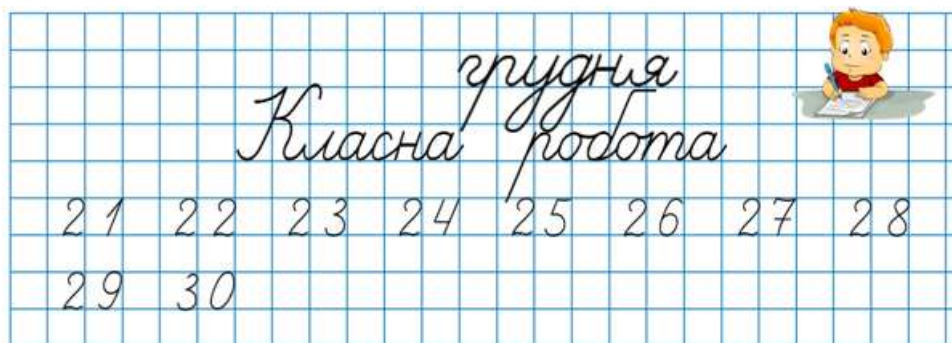 грудня
Класна робота
21 22 23 24 25 26 27 28
29 30